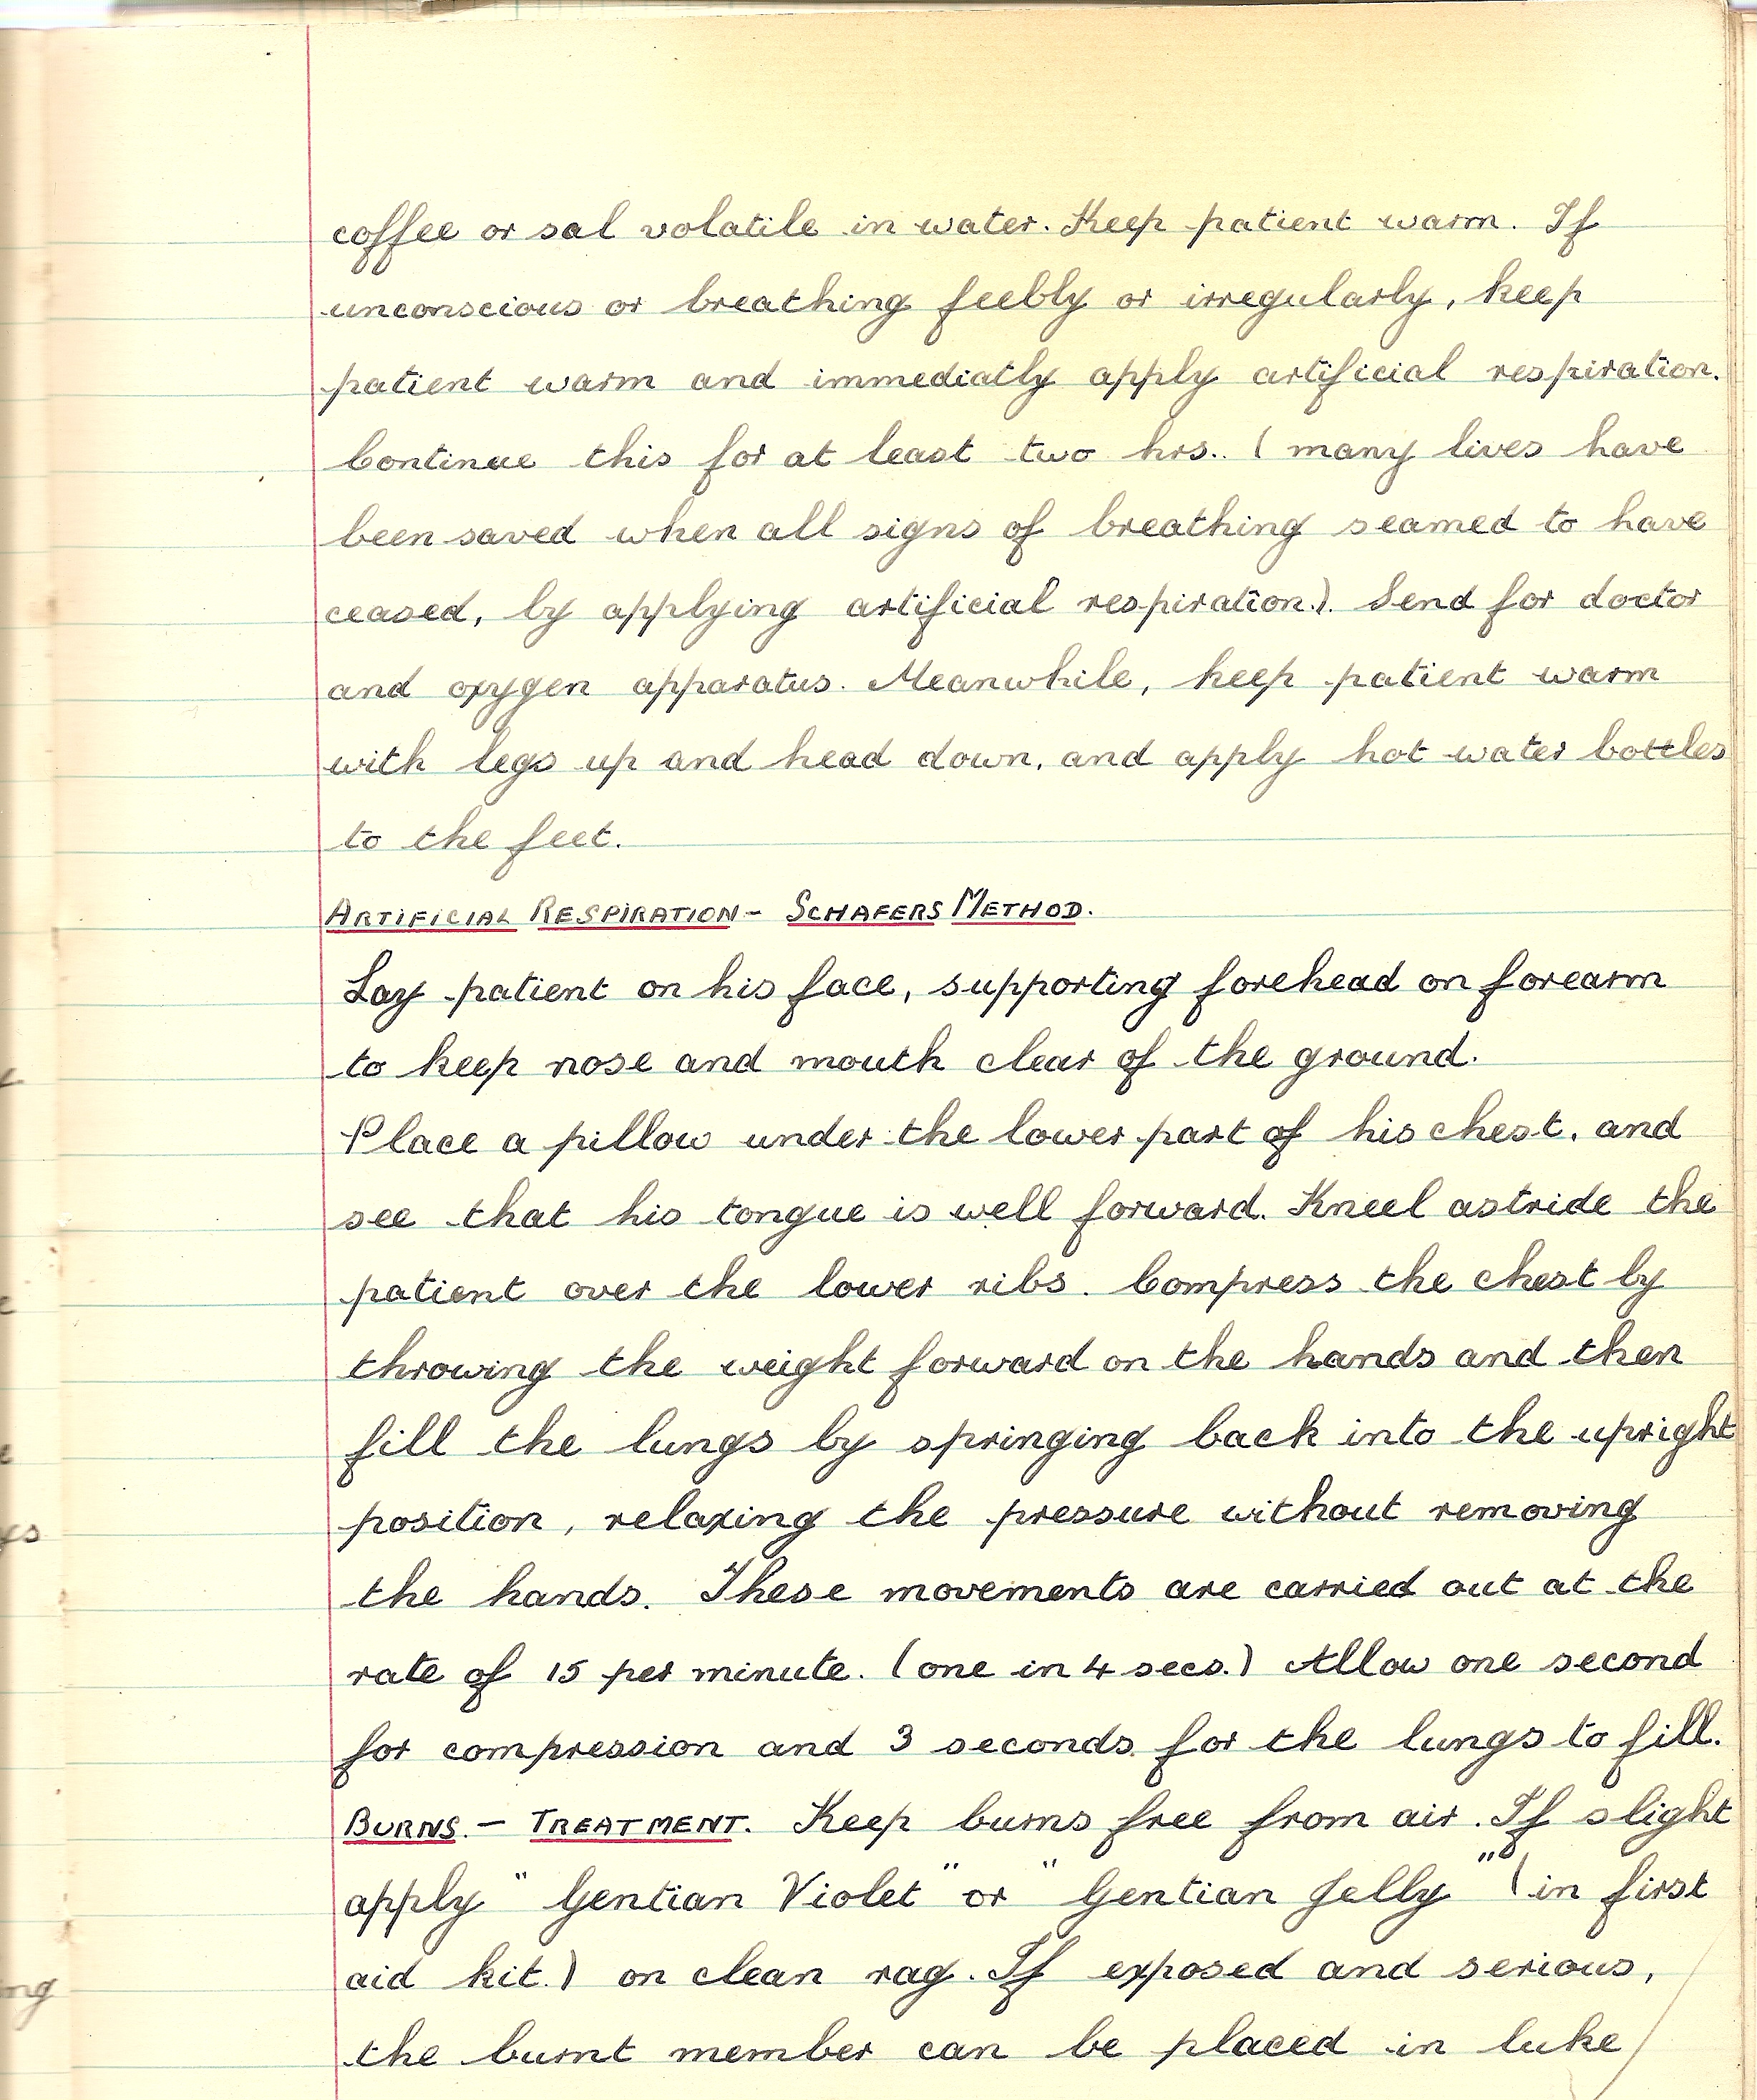 coffee or sal volatile in water. Keep patient warm. If
unconscious or breathing feebly or irregularly, keep
patient warm and immediatly apply artificial respiration.
Continue this for at least two hrs.. (many lives have
been saved when all signs of breathing seamed to have
ceased, by applying artificial respiration.). Send for doctor
and oxygen apparatus. Meanwhile, keep patient warm
with legs up and head down, and apply hot water bottles
to the feet.
ARTIFICIAL RESPIRATION - SCHAFERS METHOD.
Lay patient on his face, supporting forehead on forearm
to keep nose and mouth clear of the ground.
Place a pillow under the lower part of his chest, and
see that his tongue is well forward. Kneel astride the
patient over the lower ribs. Compress the chest by
throwing the weight forward on the hands and then
fill the lungs by springing back into the upright
position, relaxing the pressure without removing
the hands. These movements are carried out at the
rate of 15 per minute. (one in 4 secs.) Allow one second
for compression and 3 seconds for the lungs to fill.
BURNS. - TREATMENT. Keep burns free from air. If slight
apply "Gentian Violet" or "Gentian Jelly" (in first
aid kit.) on clean rag. If exposed and serious,
the burnt member can be placed in luke
ng